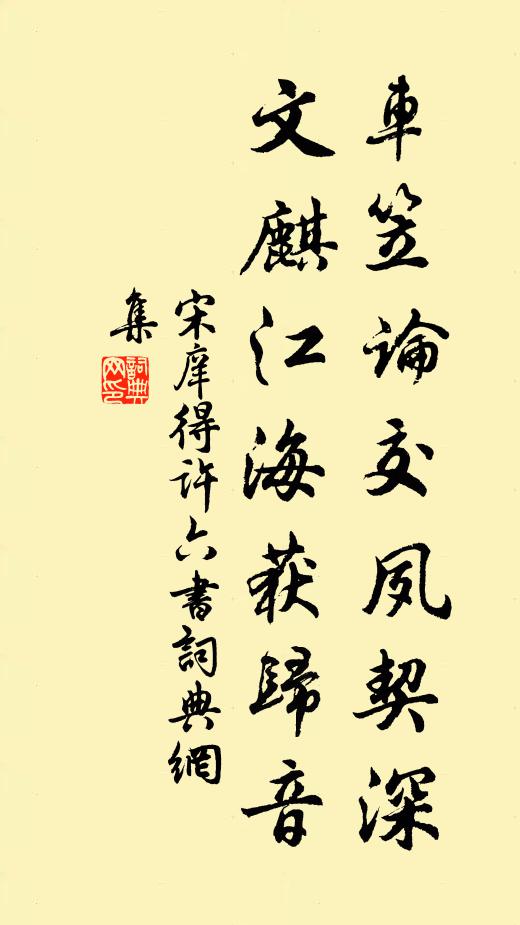 車笠論交夙契深
文麒江海获歸音
宋庠得許六書詞典網
集
詞典網印